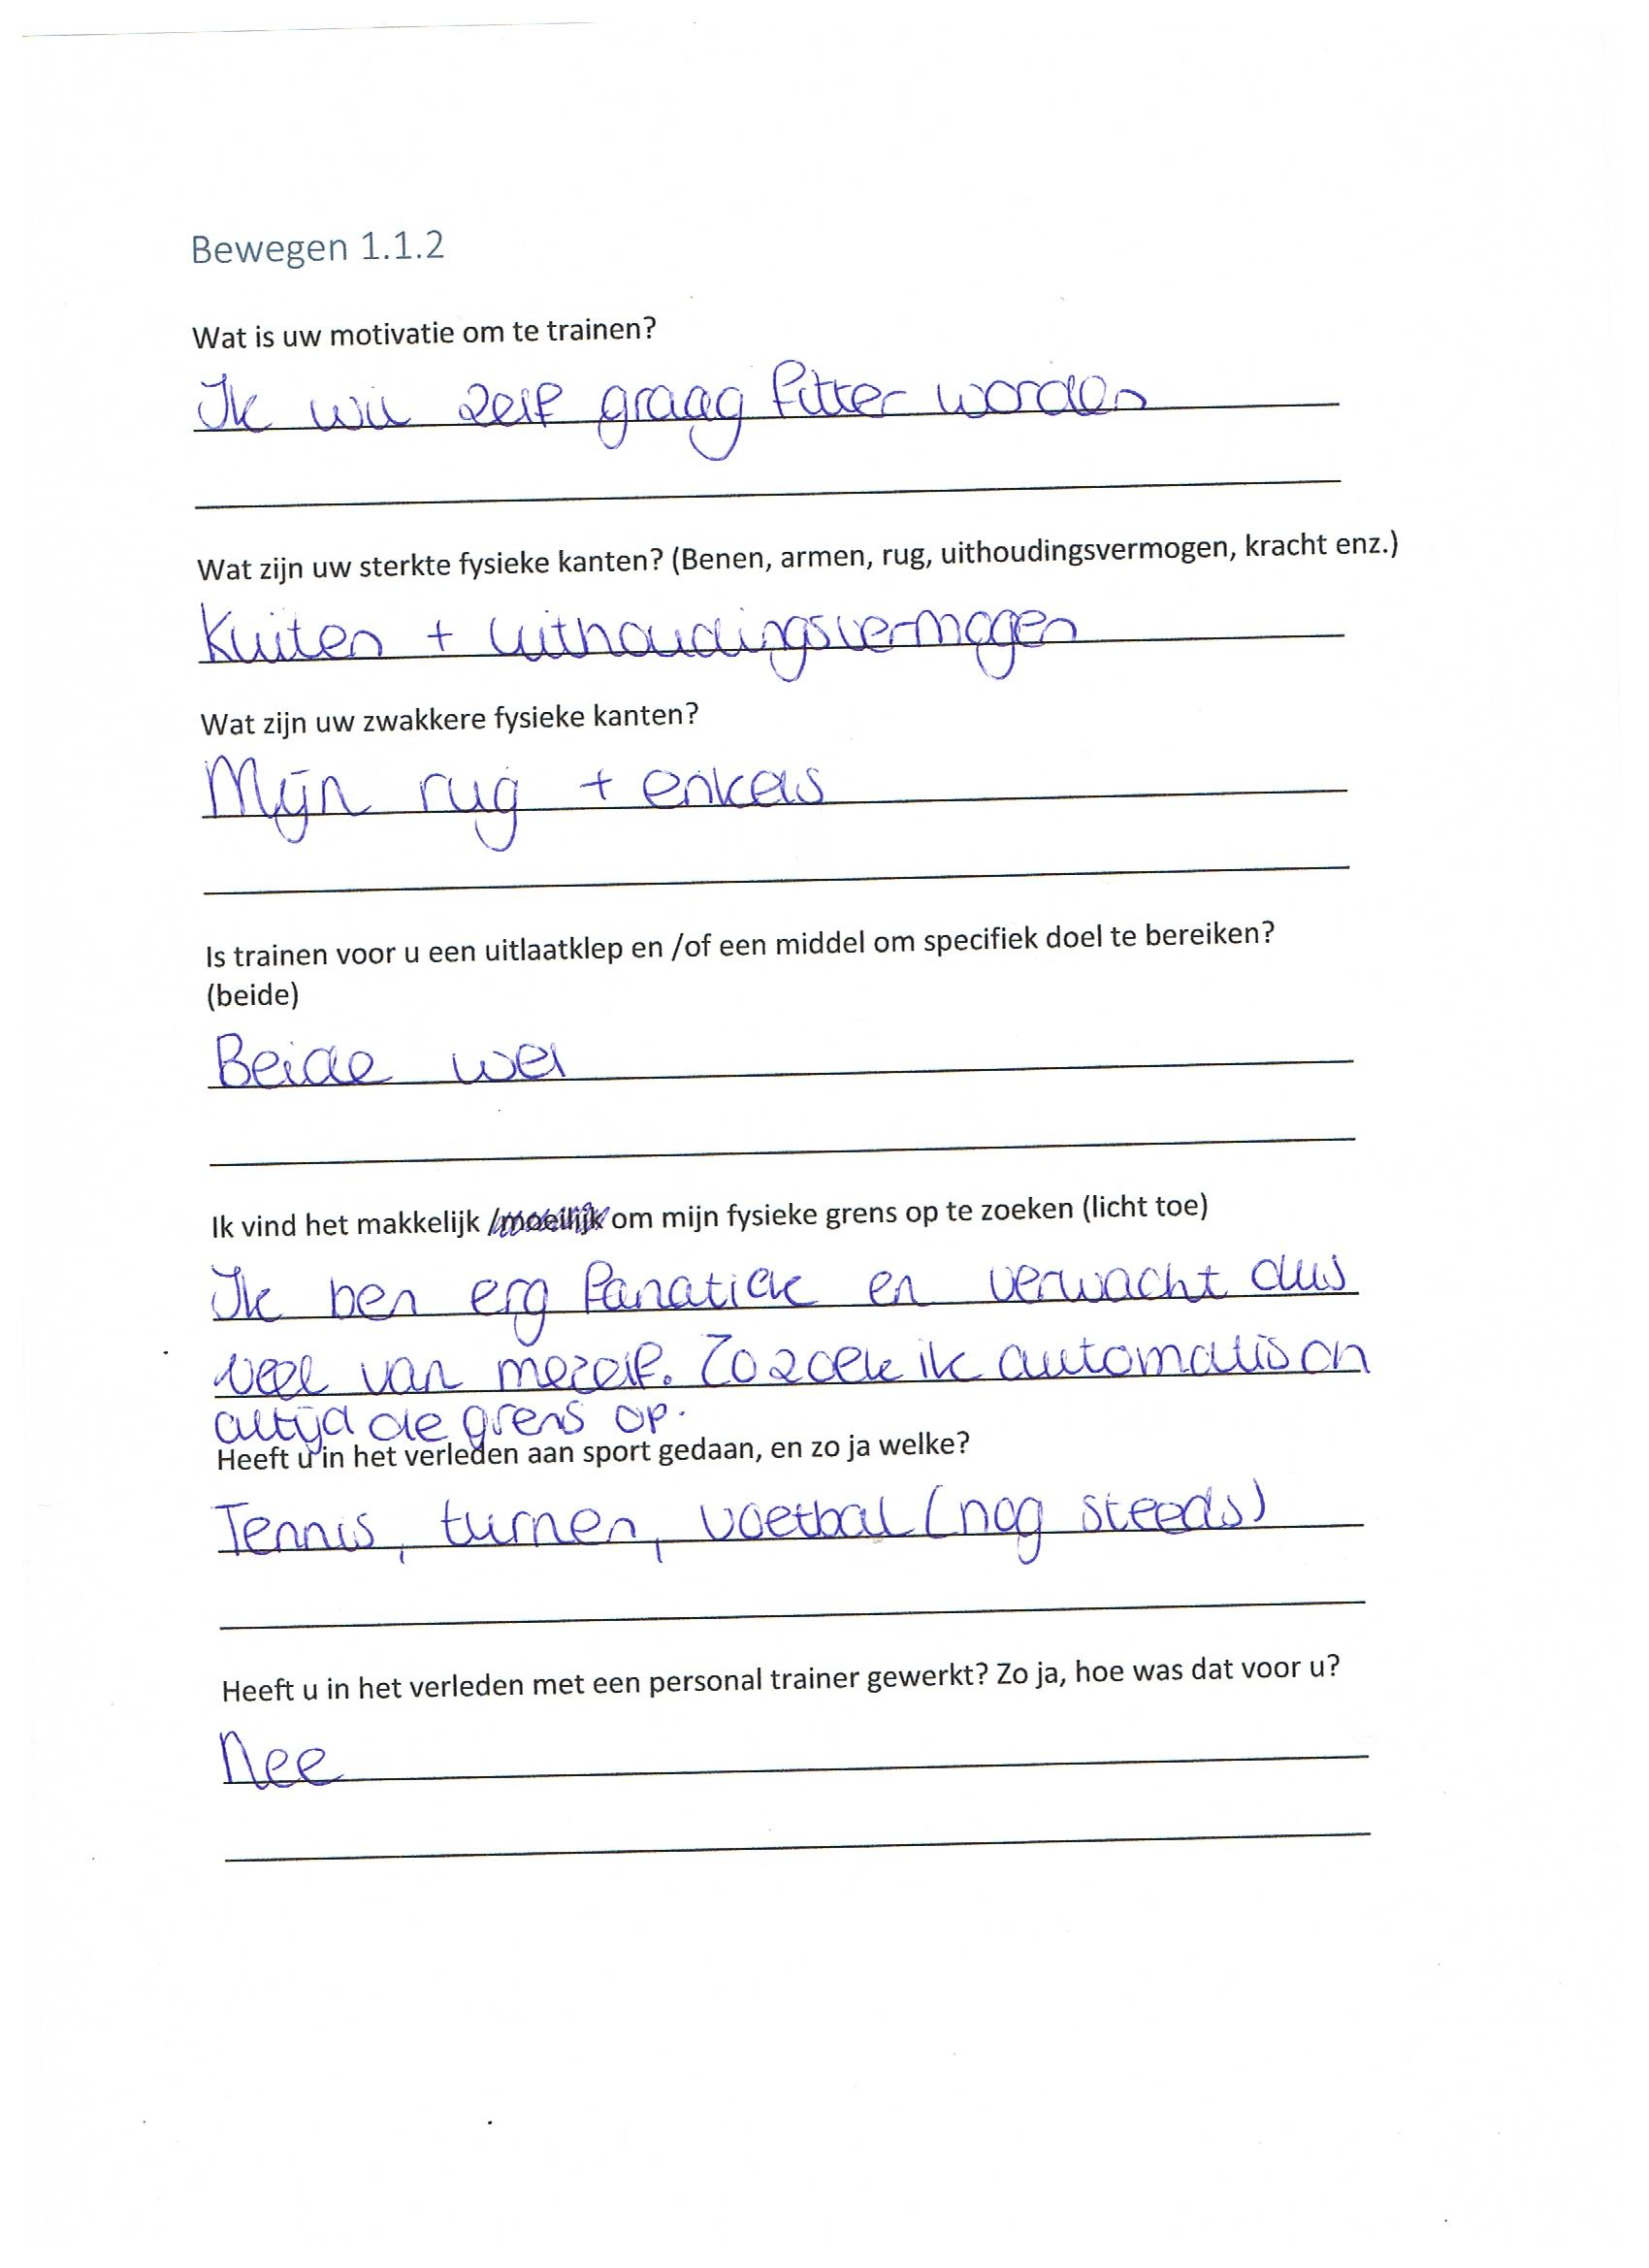 Bewegen 1.1.2
Wat is uw motivatie om te trainen?
Ik wil zelf graag fitter worden
Wat zijn uw sterkte fysieke kanten? (Benen, armen, rug, uithoudingsvermogen, kracht enz.)
Kuiten + uithoudingsvermogen
Wat zijn uw zwakkere fysieke kanten?
Mijn rug + enkels
Is trainen voor u een uitlaatklep en /of een middel om specifiek doel te bereiken?
(beide)
Beide wel
Ik vind het makkelijk /moeilijk om mijn fysieke grens op te zoeken (licht toe)
Ik ben erg fanatiek en verwacht dus
veel van mezelf. Zo zoek ik automatisch
altijd de grens op.
Heeft u in het verleden aan sport gedaan, en zo ja welke?
Tennis, turnen, voetbal (nog steeds)
Heeft u in het verleden met een personal trainer gewerkt? Zo ja, hoe was dat voor u?
Nee